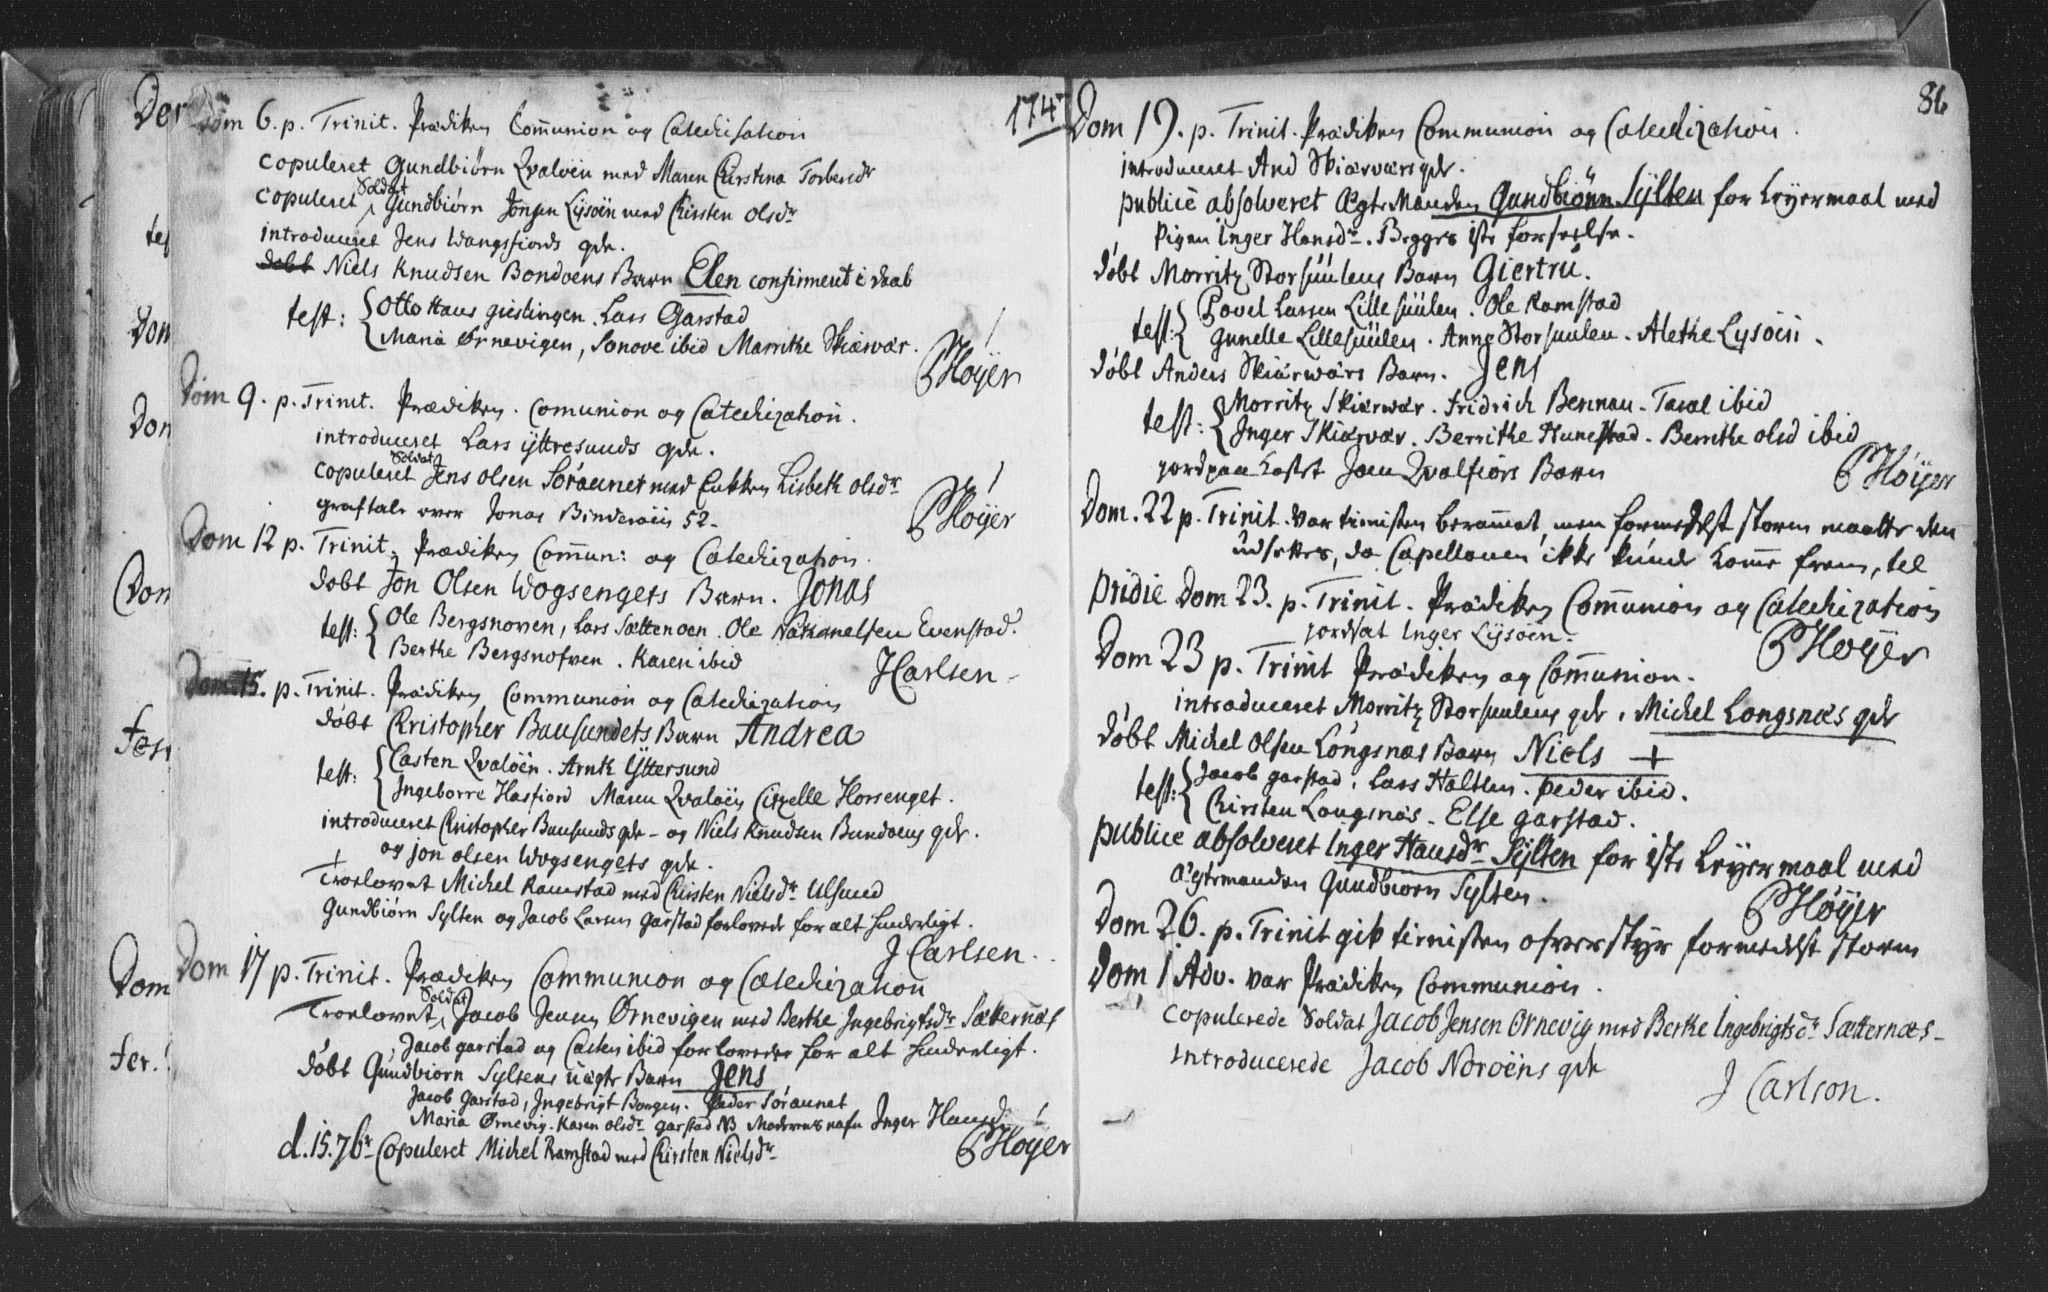 1747
Dom 6. p. Trinit. Prædiken Communion og Catechisation
copuleret Gundbiørn Qvaløen med Maren Christina Torbersdr
copuleret Soldat Gundbiørn Jonsen Lysøen med Chirsten Olsdr
introduceret Jens Wangsfiords qde.
døbt Niels Knudsen Bondøens Barn Elen confirmerit i daab
test: Otto Hans gieslingen. Lars Garstad
Maria Ørnevigen, Sonove ibid Marrithe Skiærvær.
PHøyer
Dom 9. p. Trinit. Prædiken. Comunion og Catechization.
introduceret Lars Yttresunds qde.
copuleret Soldat Jens Olsen Søraunet med Enkken Lisbeth Olsdr
graftale over Jonas Binderøen 52.
PHøyer
Dom 12 p. Trinit. Prædiken Commun: og Catechization.
døbt Jon Olsen Wogsengets Barn. Jonas
test: Ole Bergsnoven, Lars Sættenoen. Ole Nathanelsen Evenstad.
Berthe Bergsnofven. Karen ibid
JCarlsen
Dom. 15. p. Trinit. Prædiken Communion og Catechization
døbt Christopher Bausundets Barn Andrea
test: Casten Qvaløen. Arnt Yttersund
Ingeborre Hasfiord Maren Qvaløen Cizelle Horsenget.
introduceret Christopher Bausunds qde - og Niels Knudsen Bundøens qde.
og Jon Olsen Wogsengets qde.
Troelovet Michel Ramstad med Chirsten Nielsdr Ulsund
Gundbiørn Sylten og Jacob Larsen Garstad forlovede for alt hinderligt.
J Carlsen.
Dom 17 p. Trinit. Prædiken Communion og Catechization
Troelovet Soldat Jacob Jensen Ørnevigen med Berthe Ingebrigtsdr Sætternæs
Jacob garstad og Casten ibid forloveder for alt hinderligt.
døbt Gundbiørn Syltens uægte Barn Jens
Jacob Garstad, Ingebrigt Borgen. Peder Søraunet
Maria Ørnevig. Karen Olsdr garstad NB Moderens nafn Inger Hansdr
PHøyer
d. 15. 7br Copuleret Michel Ramstad med Chirsten Nielsdr
86
Dom 19. p. Trinit. Prædiken Communion og Catechization.
introduceret And Skiærværs qde.
publicè absolveret Ægte Manden Gundbiønn Sylten for Leyermaal med
Pigen Inger Hansdr. Begges 1ste forseelse.
døbt Morritz Storsuulens Barn Giertru.
test: Povel Larsen Lillesuulen. Ole Ramstad
gunelle Lillesuulen. Anne Storsuulen. Alethe Lysøen.
døbt Anders Skiærværs Barn. Jens
test: Morritz Skiærvær. Fridrich Bennau. Taral ibid
Inger Skiærvær. Berrithe Hunestad. Berrithe Olsd ibid
jordpaa kastet Joen Qvalfiørs Barn
PHøyer
Dom. 22 p. Trinit. var tienisten berammat, men formedelst storm maatte den
udsettes, da Capellanen ikke kunde komme frem, tel
pridie Dom 23. p. Trinit. Prædiken Communion og Catechization
jordsat Inger Lysøen.
PHøyer
Dom 23 p. Trinit Prædiken og Communion.
introduceret Morritz Storsuulens qde, Michel Longsnæs qde
døbt Michel Olsen Longsnæs Barn Niels +
test: Jacob garstad. Lars Haltlen. Peder ibid.
Chirsten Longsnæs. Else garstad.
publicè absolveret Inger Hansdr Sylten for 1ste Leyermaal med
ægtemanden Gundbiorn Sylten.
PHøyer
Dom 26. p. Trinit gik tienisten ofverstyr formedelst storm
Dom 1 Adv. var Prædiken Communion.
Copulerede Soldat Jacob Jensen Ørnevig med Berthe Ingebrigtsdr Sætternæs
Introducerede Jacob Norøens qde
J Carlson.